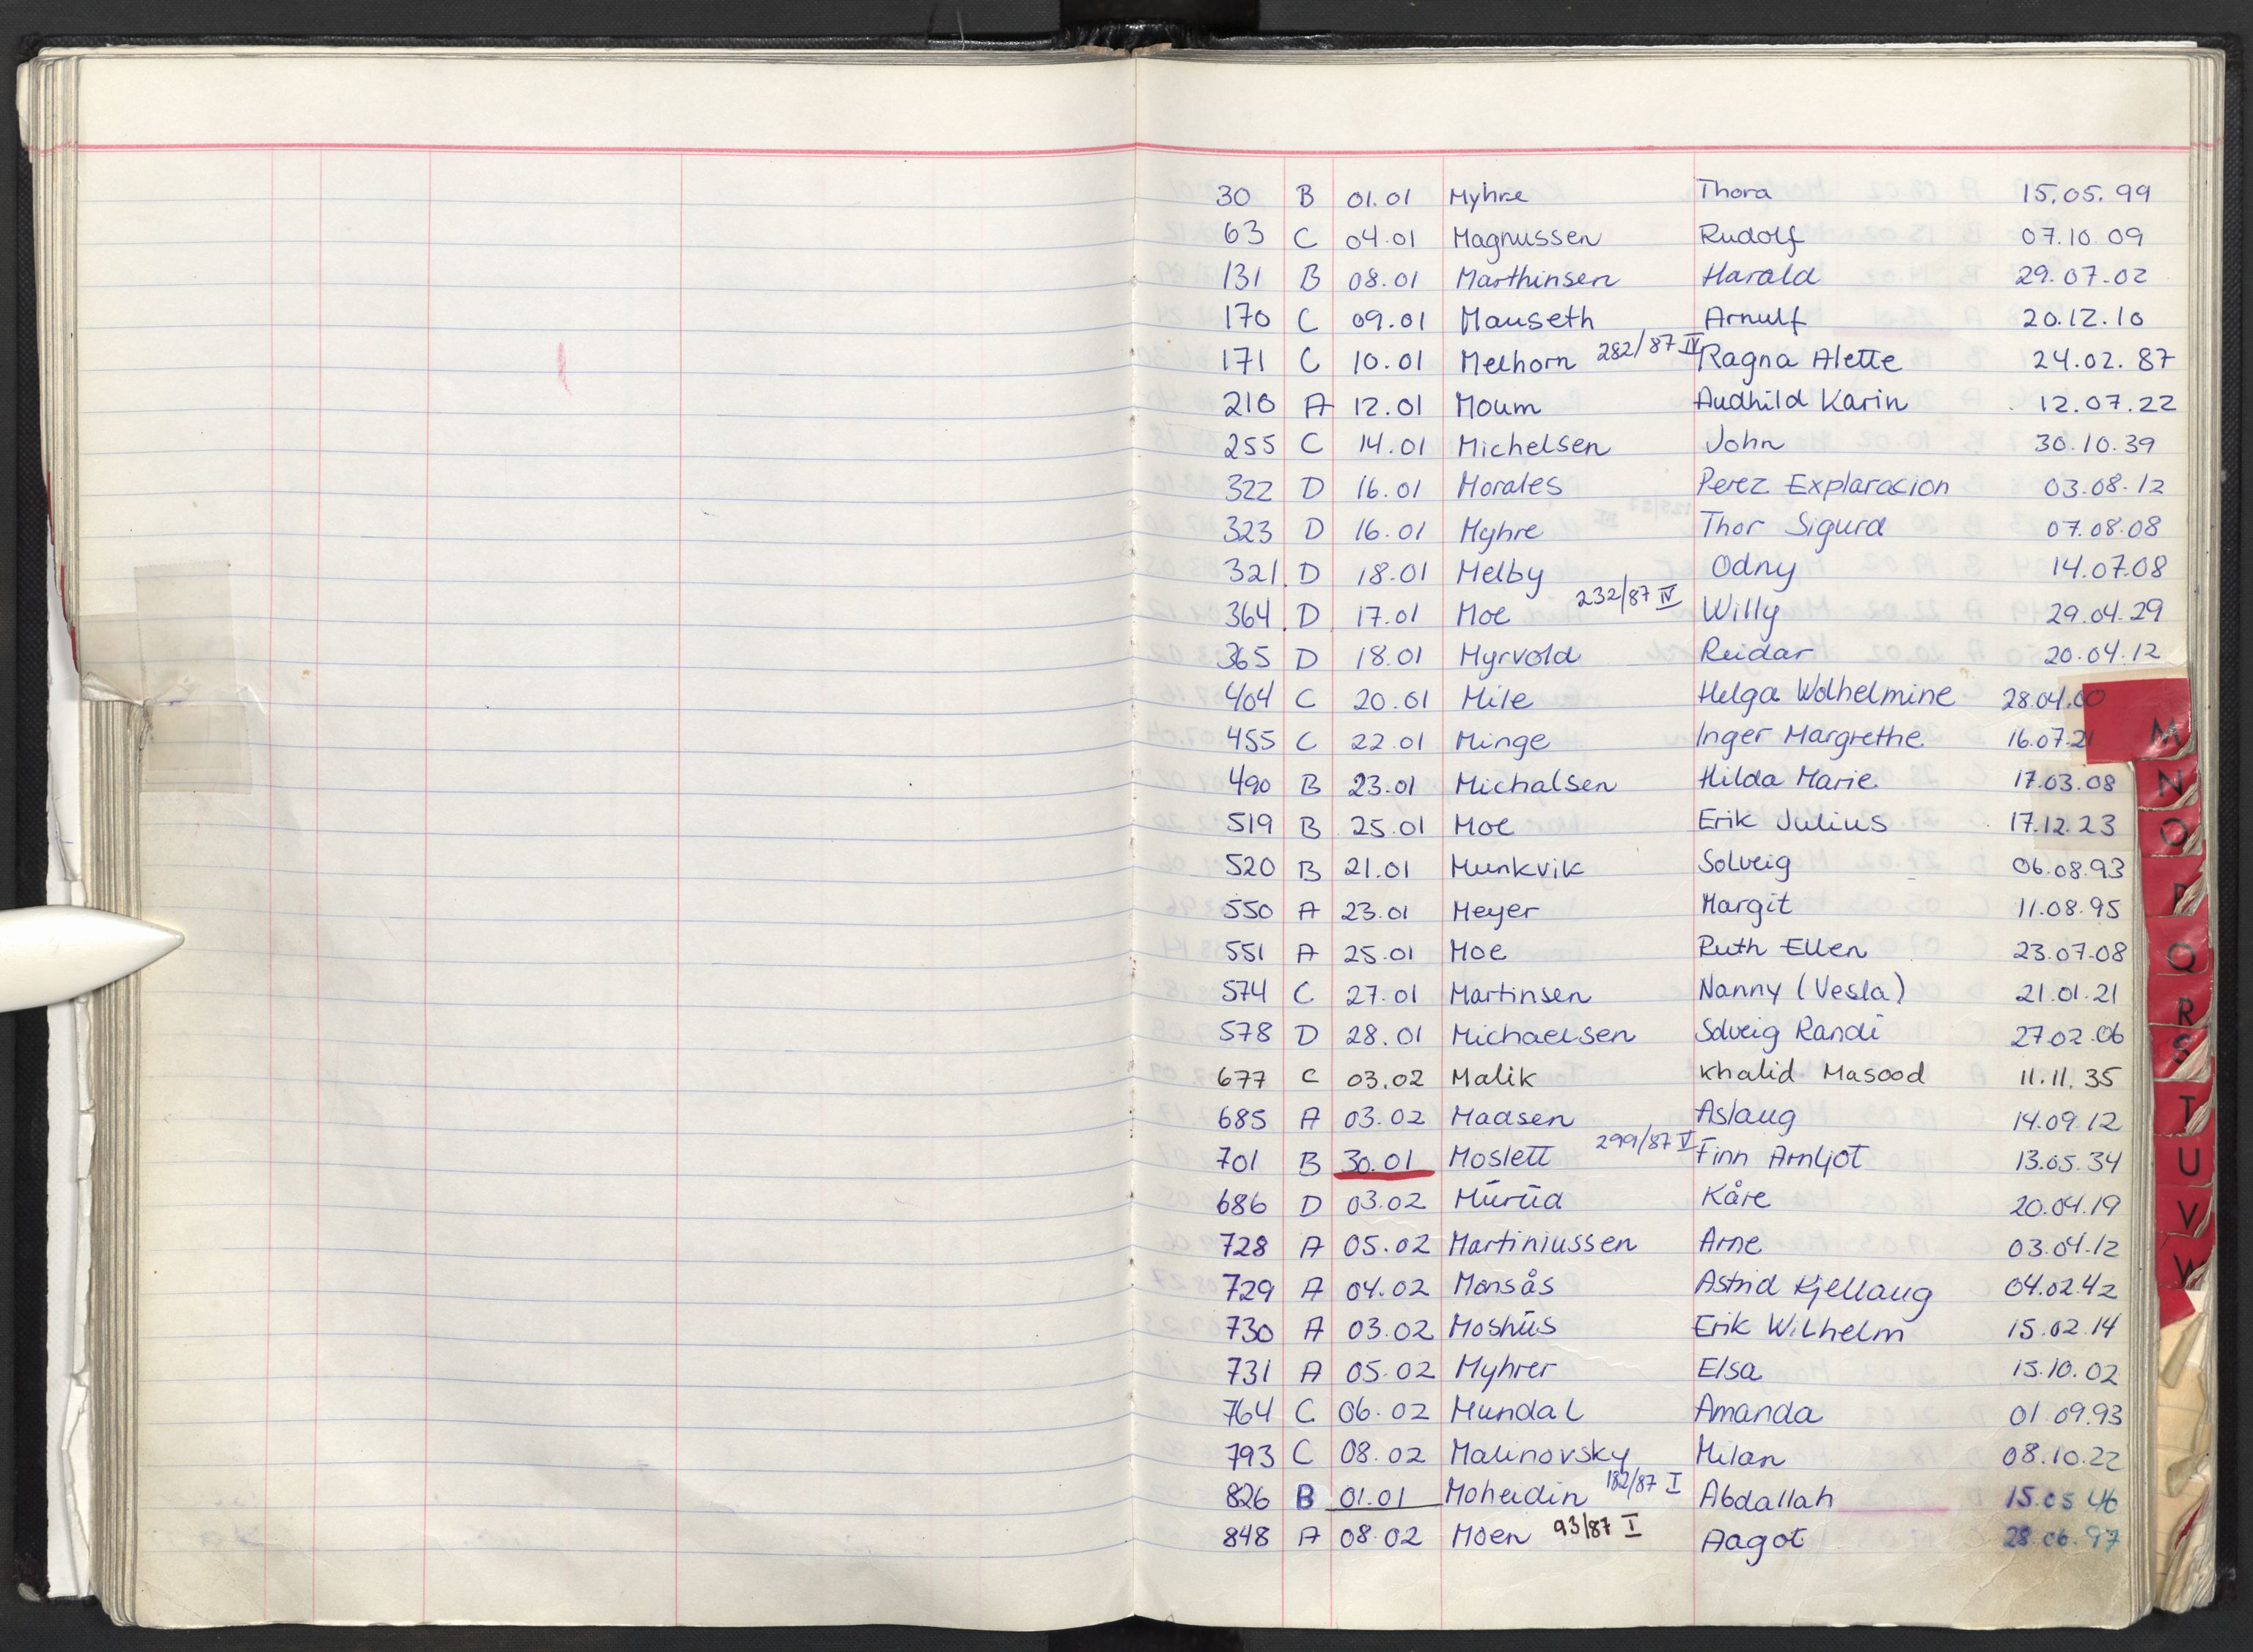 30 B 01.01 Myhre Thora 15.05.99
63 C 04.01 Magnussen Rudolf 07.10 09
131 B 08.01 Marthinsen Harald 29.07.02
170 C 09.01 Mauseth Arnulf 20.12.10
171 C 10.01 Melhorn 282/87 IV Ragna Alette 24.02.87
210 A 12.01 Moum Audhild Karin 12.07.22
255 C 14.01 Michelsen John 30.10.39
322 D 16.01 Morales Perez Explaracion 03.08.12
323 D 16.01 Myhre Thor Sigurd 07.08.08
321 D 18.01 Melby Odny 14.07.08
364 D 17.01 Moe 232/87 IV Willy 29.04.29
365 D 18.01 Myrvold Reidar 20.04.12
404 C 20.01 Mile Helga Wolhelmine 28.04.00
455 C 22.01 Minge Inger Margrethe 16.07.21
490 B 23.01 Michalsen Hilda Marie 17.03.08
519 B 25.01 Moe Erik Julius 17.12.23
520 B 21.01 Munkvik Solveig 06.08.93
550 A 23.01 Meyer Margit 11.08.95
551 A 25.01 Moe Ruth Ellen 23.07.08
574 C 27.01 Martinsen Nanny (Vesla) 21.01.21
578 D 28.01 Michaelsen Solveig Randi 27.02.06
677 C 03.02 Malik Khalid Masood 11.11.35
685 A 03.02 Madsen Aslaug 14.09.12
701 B 30.01 Moslett 299/87 V Finn Arnljot 13.05.34
686 D 03.02 Murud Kåre 20.04.19
728 A 05.02 Martiniussen Arne 03.04.12
729 A 04.02 Monsås Astrid Kjellaug 04.02.42
730 A 03.02 Moshus Erik Wilhelm 15.02.14
731 A 05.02 Myhrer Elsa 15.10.02
764 C 06.02 Mundal Amanda 01.09.93
793 C 08.02 Malinovsky Milan 08.10.22
826 B 01.01 Moheidin 182/87 I Abdallah 15.05 46
848 A 08.02 Moen 93/87 I Aagot 28.06.97
M
N
O
P
Q
R
S
T
U
V
W